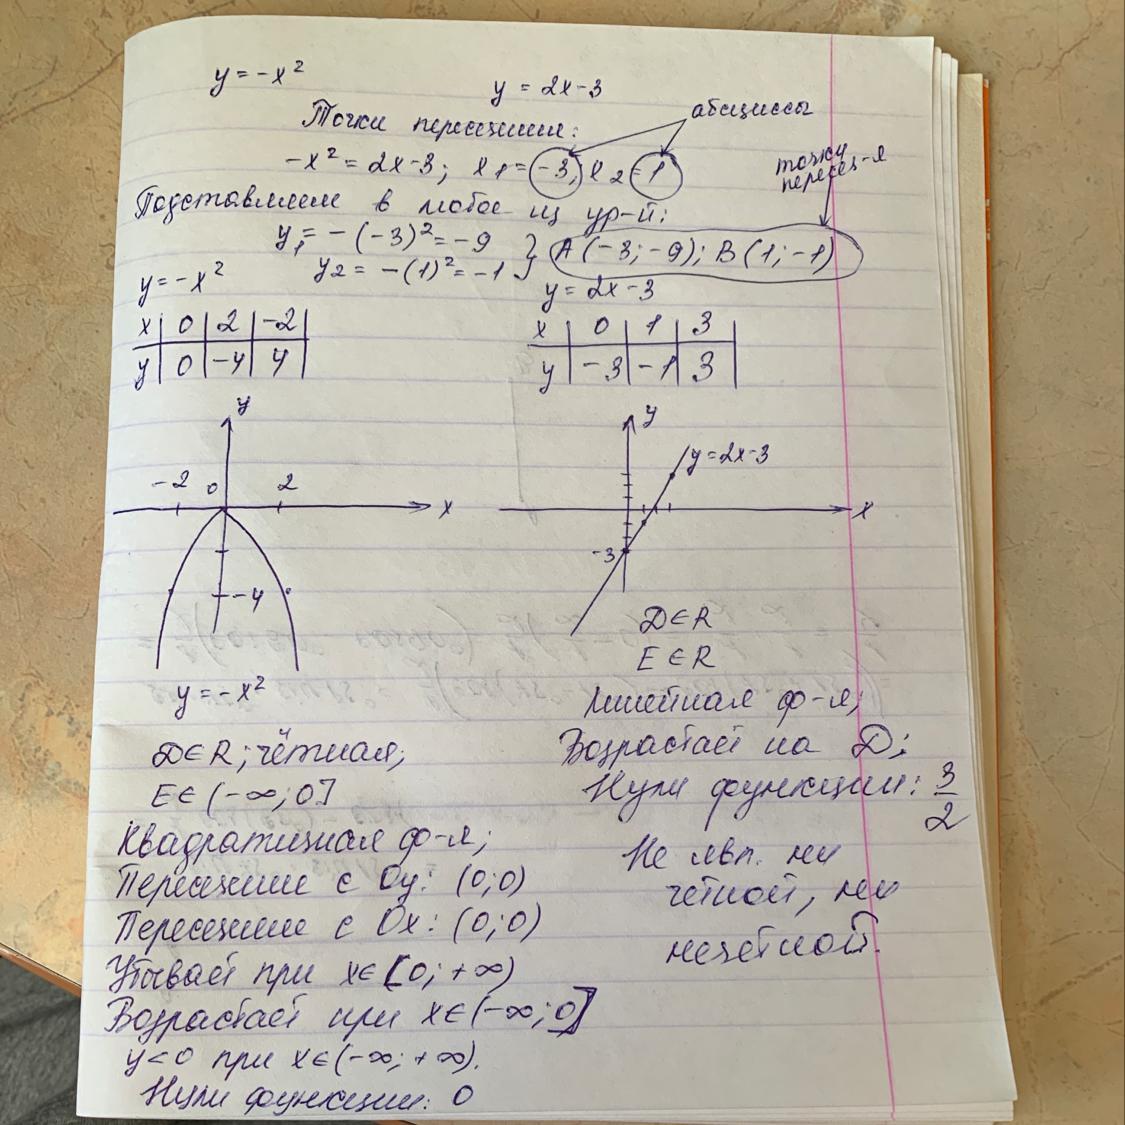 y = -x²
y = 2x-3
Точки пересечения:
абсциссы
-x² = 2x-3; x₁ = -3, x₂ = 1
точки
перес-я
Подставляем в любое из ур-й:
y₁ = -(-3)² = -9
y₂ = -(1)² = -1
} A(-3; -9); B(1; -1)
y = -x²
x | 0 | 2 | -2
y | 0 | -4 | 4
y = 2x-3
x | 0 | 1 | 3
y | -3 | -1 | 3
y
-2 0 2 x
-4
y = -x²
y
y = 2x-3
x
-3
D∈R; чётная;
E∈(-∞; 0]
Квадратичная ф-я;
Пересечение с Oy: (0;0)
Пересечение с Ox: (0;0)
Убывает при x∈[0; +∞)
Возрастает при x∈(-∞; 0]
y<0 при x∈(-∞; +∞).
Нули функции: 0
D∈R
E∈R
Линейная ф-я;
Возрастает на D;
Нули функции: 3/2
Не явл. ни
чётной, ни
нечётной.